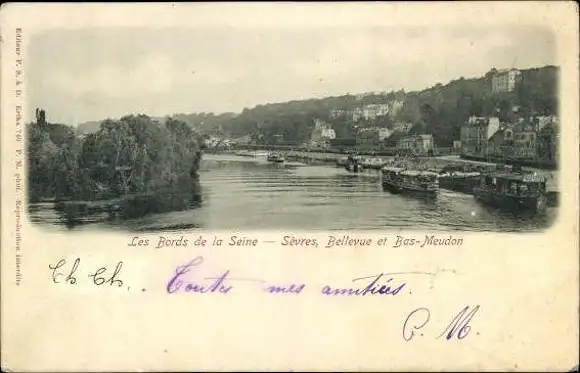 Editeur P. S. à D. Erika 740 P. M. phot. Reproduction interdite
Les Bords de la Seine — Sèvres, Bellevue et Bas-Meudon
Ch Ch. Toutes mes amitiées.
C. M.